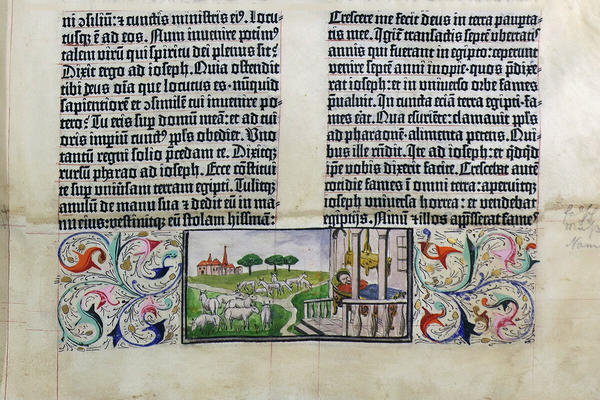 ni ɔsiliū: ⁊ cunctis ministris eiꝰ. locu-
tusqꝫ ē ad eos. Num invenire poterimꝰ
talem virū qui spiritu dei plenus sit?
Dixit ergo ad ioseph. Quia ostendit
tibi deus oīa que locutus es. nūquid
sapientiorē et ɔsimilē tui invenire po-
tero? Tu eris suꝑ domū meā: et ad tui
oris imꝑiū cunctꝰ ppl̄s obediet. Vno
tantū regni solio p̄cedam te. Dixitqꝫ
rursū pharao ad ioseph. Ecce cōstitui
te sup univ̄sam terram egipti. Tulitqꝫ
anulū de manu sua ⁊ dedit eū in ma-
nu eius: vestivitqꝫ eū stolam bissinā:
Crescere me fecit deus in terra paupta-
tis mee. Igit̄ transactis septē ubertatꝭ
annis qui fuerant in egipto: ceperunt
venire septē anni inopie. quos p̄dixe-
rat ioseph: et in universo orbe fames
p̄valuit. In cuncta eciā terra egipti. fa-
mes erat. Qua esuriēte: clamavit ppl̄s
ad pharaonē. alimenta petens. Qui-
bus ille rn̄dit. Ite ad ioseph: et qd̄qd̄
ip̄e vobis dixerit facite. Crescebat aut̄
cotidie fames ī omni terra: aperuitqꝫ
ioseph universa horrea: et vendebat
egiptijs. Nam ⁊ illos opp̄sserat fames